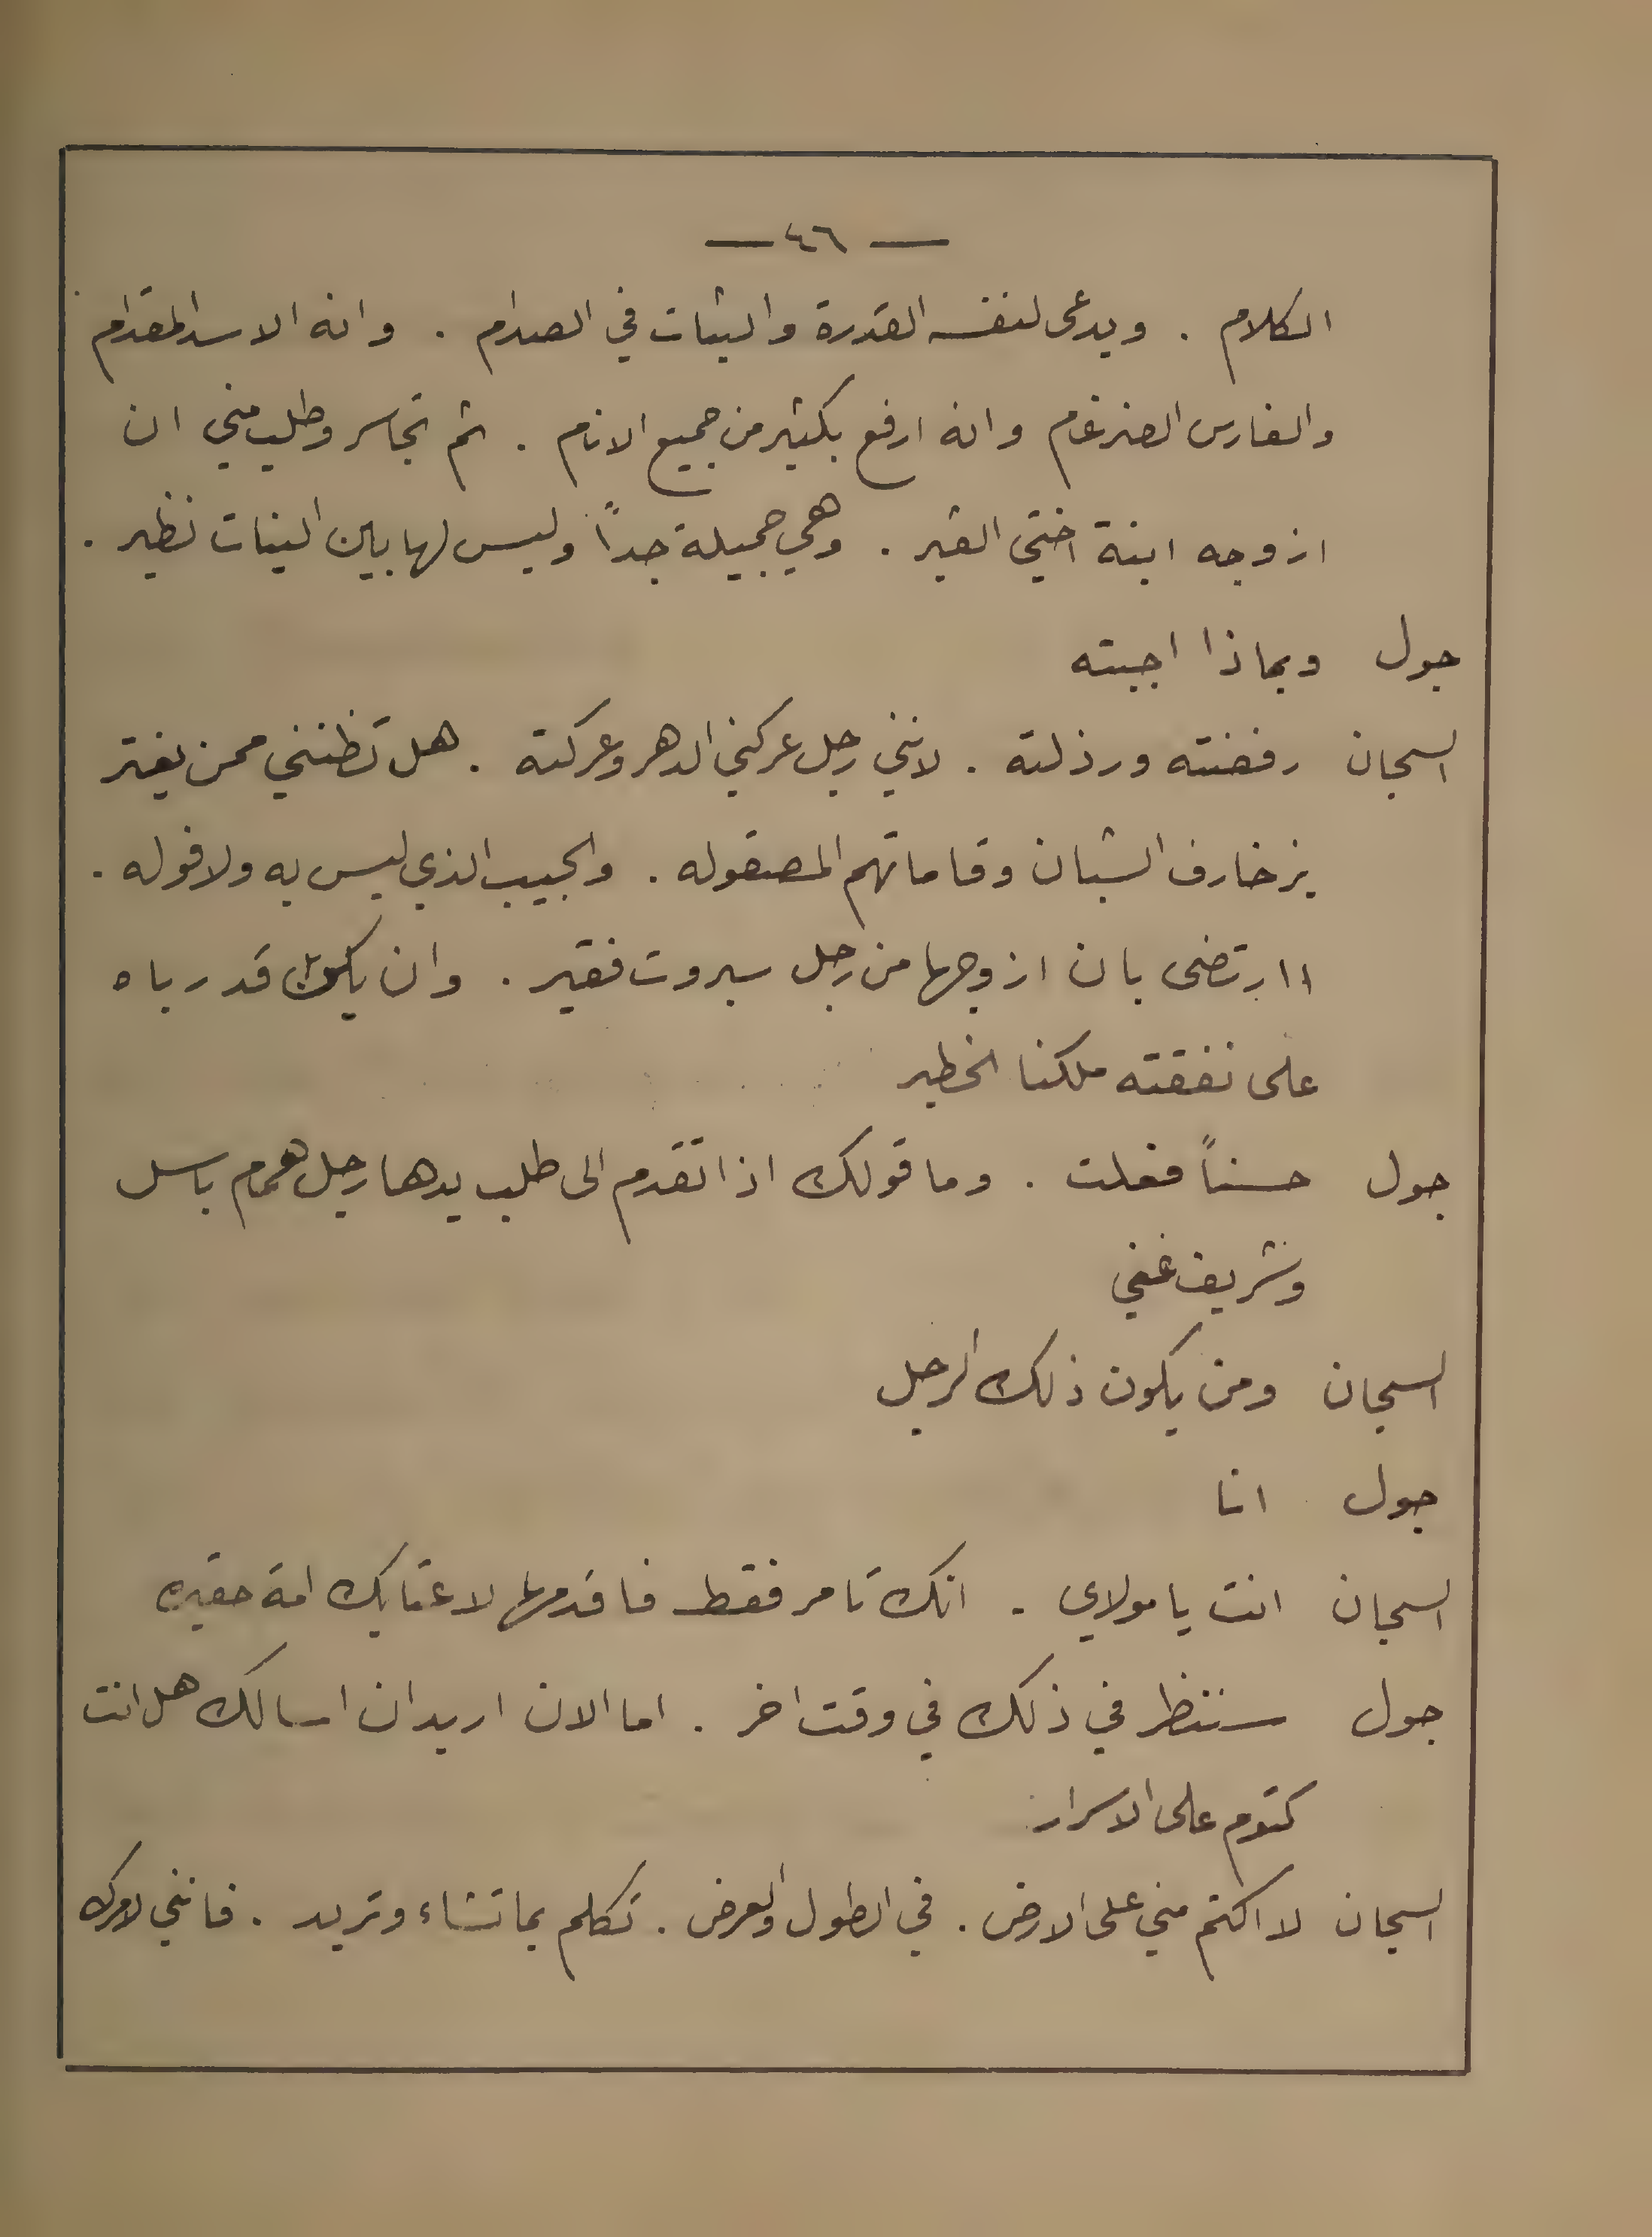 — ٤٦ —
الكلام . ويدعى لنفسه القدرة والثبات في الصدام . وانه الاسد المقدام
والفارس الضرغام وانه ارفع بكثير من جميع الانام . ثم تجاسر وطلب مني ان
ازوجه ابنة اختي القير . وهي جميلة جداً وليس لها بين البنات نظير .
جول وبماذا اجبته
السجان رفضته ورذلته . لانني رجل عركني الدهر وعركته . هل تظنني ممن يغتر
بزخارف الشبان وقاماتهم المصقوله . والجيب الذي ليس به ولا فوله .
اارتضى بان ازوجها من رجل سبروت فقير . وان يكون قد رباه
على نفقته ملكنا الخطير
جول حسناً فعلت . وما قولك اذا تقدم الى طلب يدها رجل همام باسل
وشريف غني
السجان ومن يكون ذلك الرجل
جول انا
السجان انت يا مولاي . انك تامر فقط فاقدمها لاعتابك امة حقيره
جول سننظر في ذلك في وقت اخر . اما الان اريد ان اسالك هل انت
كتوم على الاسرار
السجان لا اكتم مني على الارض . في الطول والعرض . تكلم بما تشاء وتريد . فانني لامرك